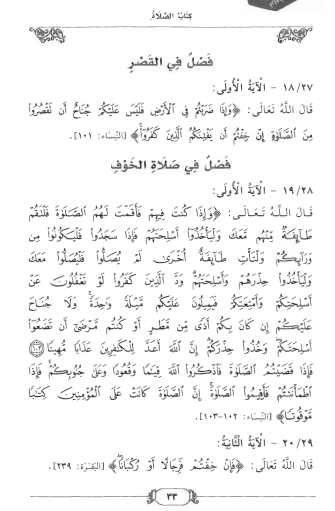 كِتَابُ الصَّلَاةِ
فَصْلٌ فِي القَصْرِ
١٨/٢٧ - الآيَةُ الْأُولَى:
قَالَ اللَّهُ تَعَالَى: ﴿وَإِذَا ضَرَبْتُمْ فِي ٱلْأَرْضِ فَلَيْسَ عَلَيْكُمْ جُنَاحٌ أَن تَقْصُرُوا۟
مِنَ ٱلصَّلَوٰةِ إِنْ خِفْتُمْ أَن يَفْتِنَكُمُ ٱلَّذِينَ كَفَرُوٓا۟﴾ [النِّسَاء: ١٠١].
فَصْلٌ فِي صَلَاةِ الخَوْفِ
١٩/٢٨ - الآيَةُ الْأُولَى:
قَالَ اللَّهُ تَعَالَى: ﴿وَإِذَا كُنتَ فِيهِمْ فَأَقَمْتَ لَهُمُ ٱلصَّلَوٰةَ فَلْتَقُمْ
طَآئِفَةٌ مِّنْهُم مَّعَكَ وَلْيَأْخُذُوٓا۟ أَسْلِحَتَهُمْ فَإِذَا سَجَدُوا۟ فَلْيَكُونُوا۟ مِن
وَرَآئِكُمْ وَلْتَأْتِ طَآئِفَةٌ أُخْرَىٰ لَمْ يُصَلُّوا۟ فَلْيُصَلُّوا۟ مَعَكَ
وَلْيَأْخُذُوا۟ حِذْرَهُمْ وَأَسْلِحَتَهُمْ وَدَّ ٱلَّذِينَ كَفَرُوا۟ لَوْ تَغْفُلُونَ عَنْ
أَسْلِحَتِكُمْ وَأَمْتِعَتِكُمْ فَيَمِيلُونَ عَلَيْكُم مَّيْلَةً وَٰحِدَةً وَلَا جُنَاحَ
عَلَيْكُمْ إِن كَانَ بِكُمْ أَذًى مِّن مَّطَرٍ أَوْ كُنتُم مَّرْضَىٰٓ أَن تَضَعُوٓا۟
أَسْلِحَتَكُمْ وَخُذُوا۟ حِذْرَكُمْ إِنَّ ٱللَّهَ أَعَدَّ لِلْكَٰفِرِينَ عَذَابًا مُّهِينًا ١٠٢
فَإِذَا قَضَيْتُمُ ٱلصَّلَوٰةَ فَٱذْكُرُوا۟ ٱللَّهَ قِيَٰمًا وَقُعُودًا وَعَلَىٰ جُنُوبِكُمْ فَإِذَا
ٱطْمَأْنَنتُمْ فَأَقِيمُوا۟ ٱلصَّلَوٰةَ إِنَّ ٱلصَّلَوٰةَ كَانَتْ عَلَى ٱلْمُؤْمِنِينَ كِتَٰبًا
مَّوْقُوتًا﴾ [النِّسَاء: ١٠٢-١٠٣].
٢٠/٢٩ - الآيَةُ الثَّانِيَةُ:
قَالَ اللَّهُ تَعَالَى: ﴿فَإِنْ خِفْتُمْ فَرِجَالًا أَوْ رُكْبَانًا﴾ [البَقَرَة: ٢٣٩].
٣٣